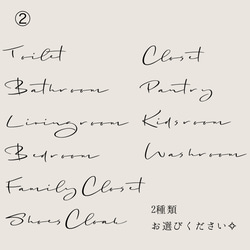 ②
Toilet
Closet
Bathroom
Pantry
Livingroom
Kidsroom
Bedroom
Washroom
Family Closet
Shoes Cloak
2種類
お選びください✧